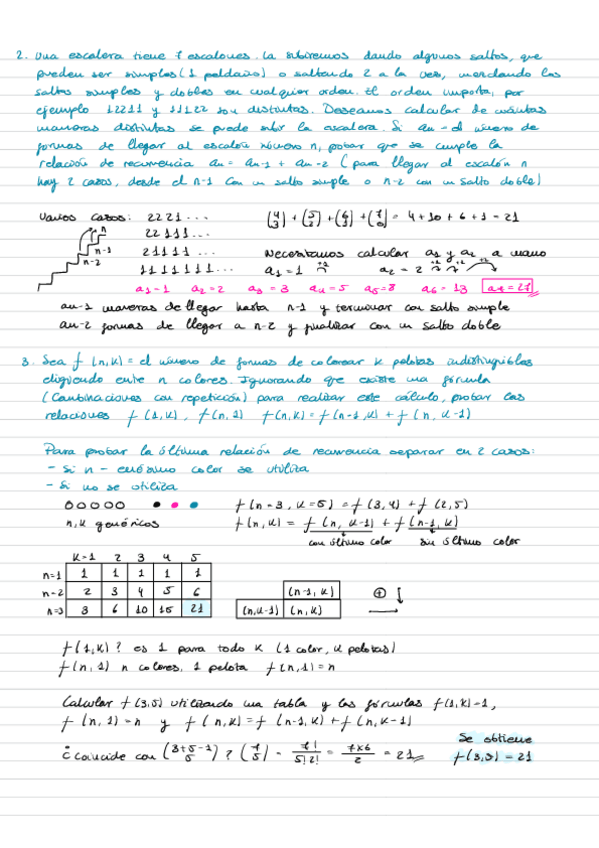 2. Una escalera tiene 7 escalones. La subiremos dando algunos saltos, que
pueden ser simples (1 peldaño) o saltando 2 a la vez, mezclando los
saltos simples y dobles en cualquier orden. El orden importa, por
ejemplo 12211 y 11122 son distintas. Deseamos calcular de cuántas
maneras distintas se puede subir la escalera. Si an = el número de
formas de llegar al escalón número n, probar que se cumple la
relación de recurrencia an = an-1 + an-2 (para llegar al escalón n
hay 2 casos, desde el n-1 con un salto simple o n-2 con un salto doble)
Varios casos: 2221... (4 3) + (5 2) + (6 1) + (7 0) = 4+10+6+1 = 21
22111...
n
n-1
n-2
21111... Necesitamos calcular a1 y a2 a mano
1111111... a1 = 1 a2 = 2
a1=1 a2=2 a3=3 a4=5 a5=8 a6=13 a7=21
an-1 maneras de llegar hasta n-1 y terminar con salto simple
an-2 formas de llegar a n-2 y finalizar con un salto doble
3. Sea f(n,k) = el número de formas de colorear k pelotas indistinguibles
eligiendo entre n colores. Ignorando que existe una fórmula
(Combinaciones con repetición) para realizar este cálculo, probar las
relaciones f(1,k), f(n,1) f(n,k) = f(n-1,k) + f(n,k-1)
Para probar la última relación de recurrencia separar en 2 casos:
- Si n-enésimo color se utiliza
- Si no se utiliza
f(n=3, k=5) = f(3,4) + f(2,5)
n,k genéricos f(n,k) = f(n,k-1) + f(n-1,k)
con último color sin último color
k=1 2 3 4 5
n=1 1 1 1 1 1
n=2 2 3 4 5 6 (n-1,k)
n=3 3 6 10 15 21 (n,k-1) (n,k)
f(1,k)? es 1 para todo k (1 color, k pelotas)
f(n,1) n colores, 1 pelota f(n,1)=n
Calcular f(3,5) utilizando una tabla y las fórmulas f(1,k)=1,
f(n,1)=n y f(n,k)=f(n-1,k)+f(n,k-1)
Se obtiene
¿Coincide con (3+5-1 5)? (7 5) = 7!/5!2! = 7×6/2 = 21 f(3,5)=21